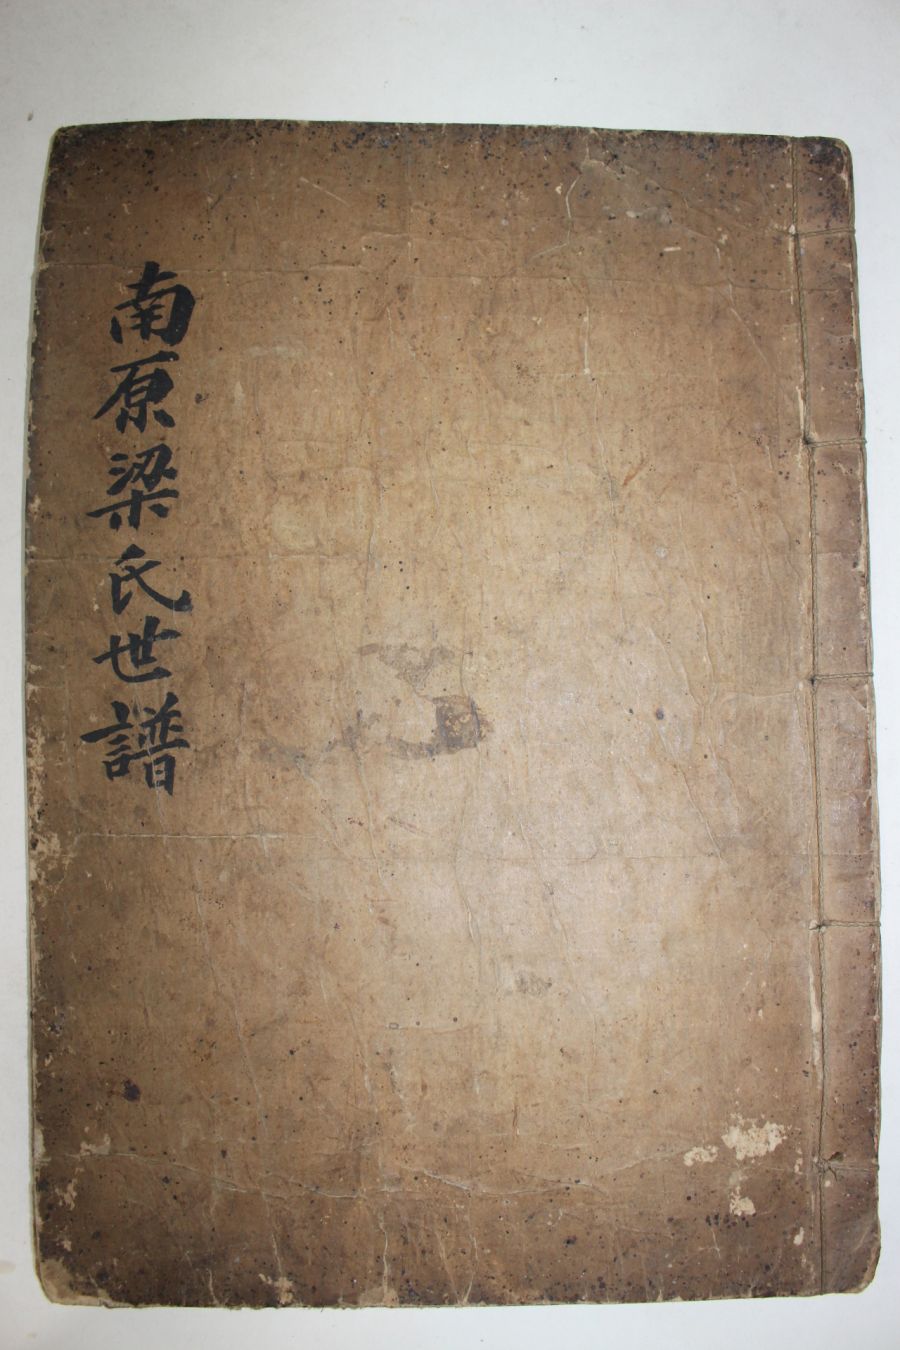 南原梁氏世譜